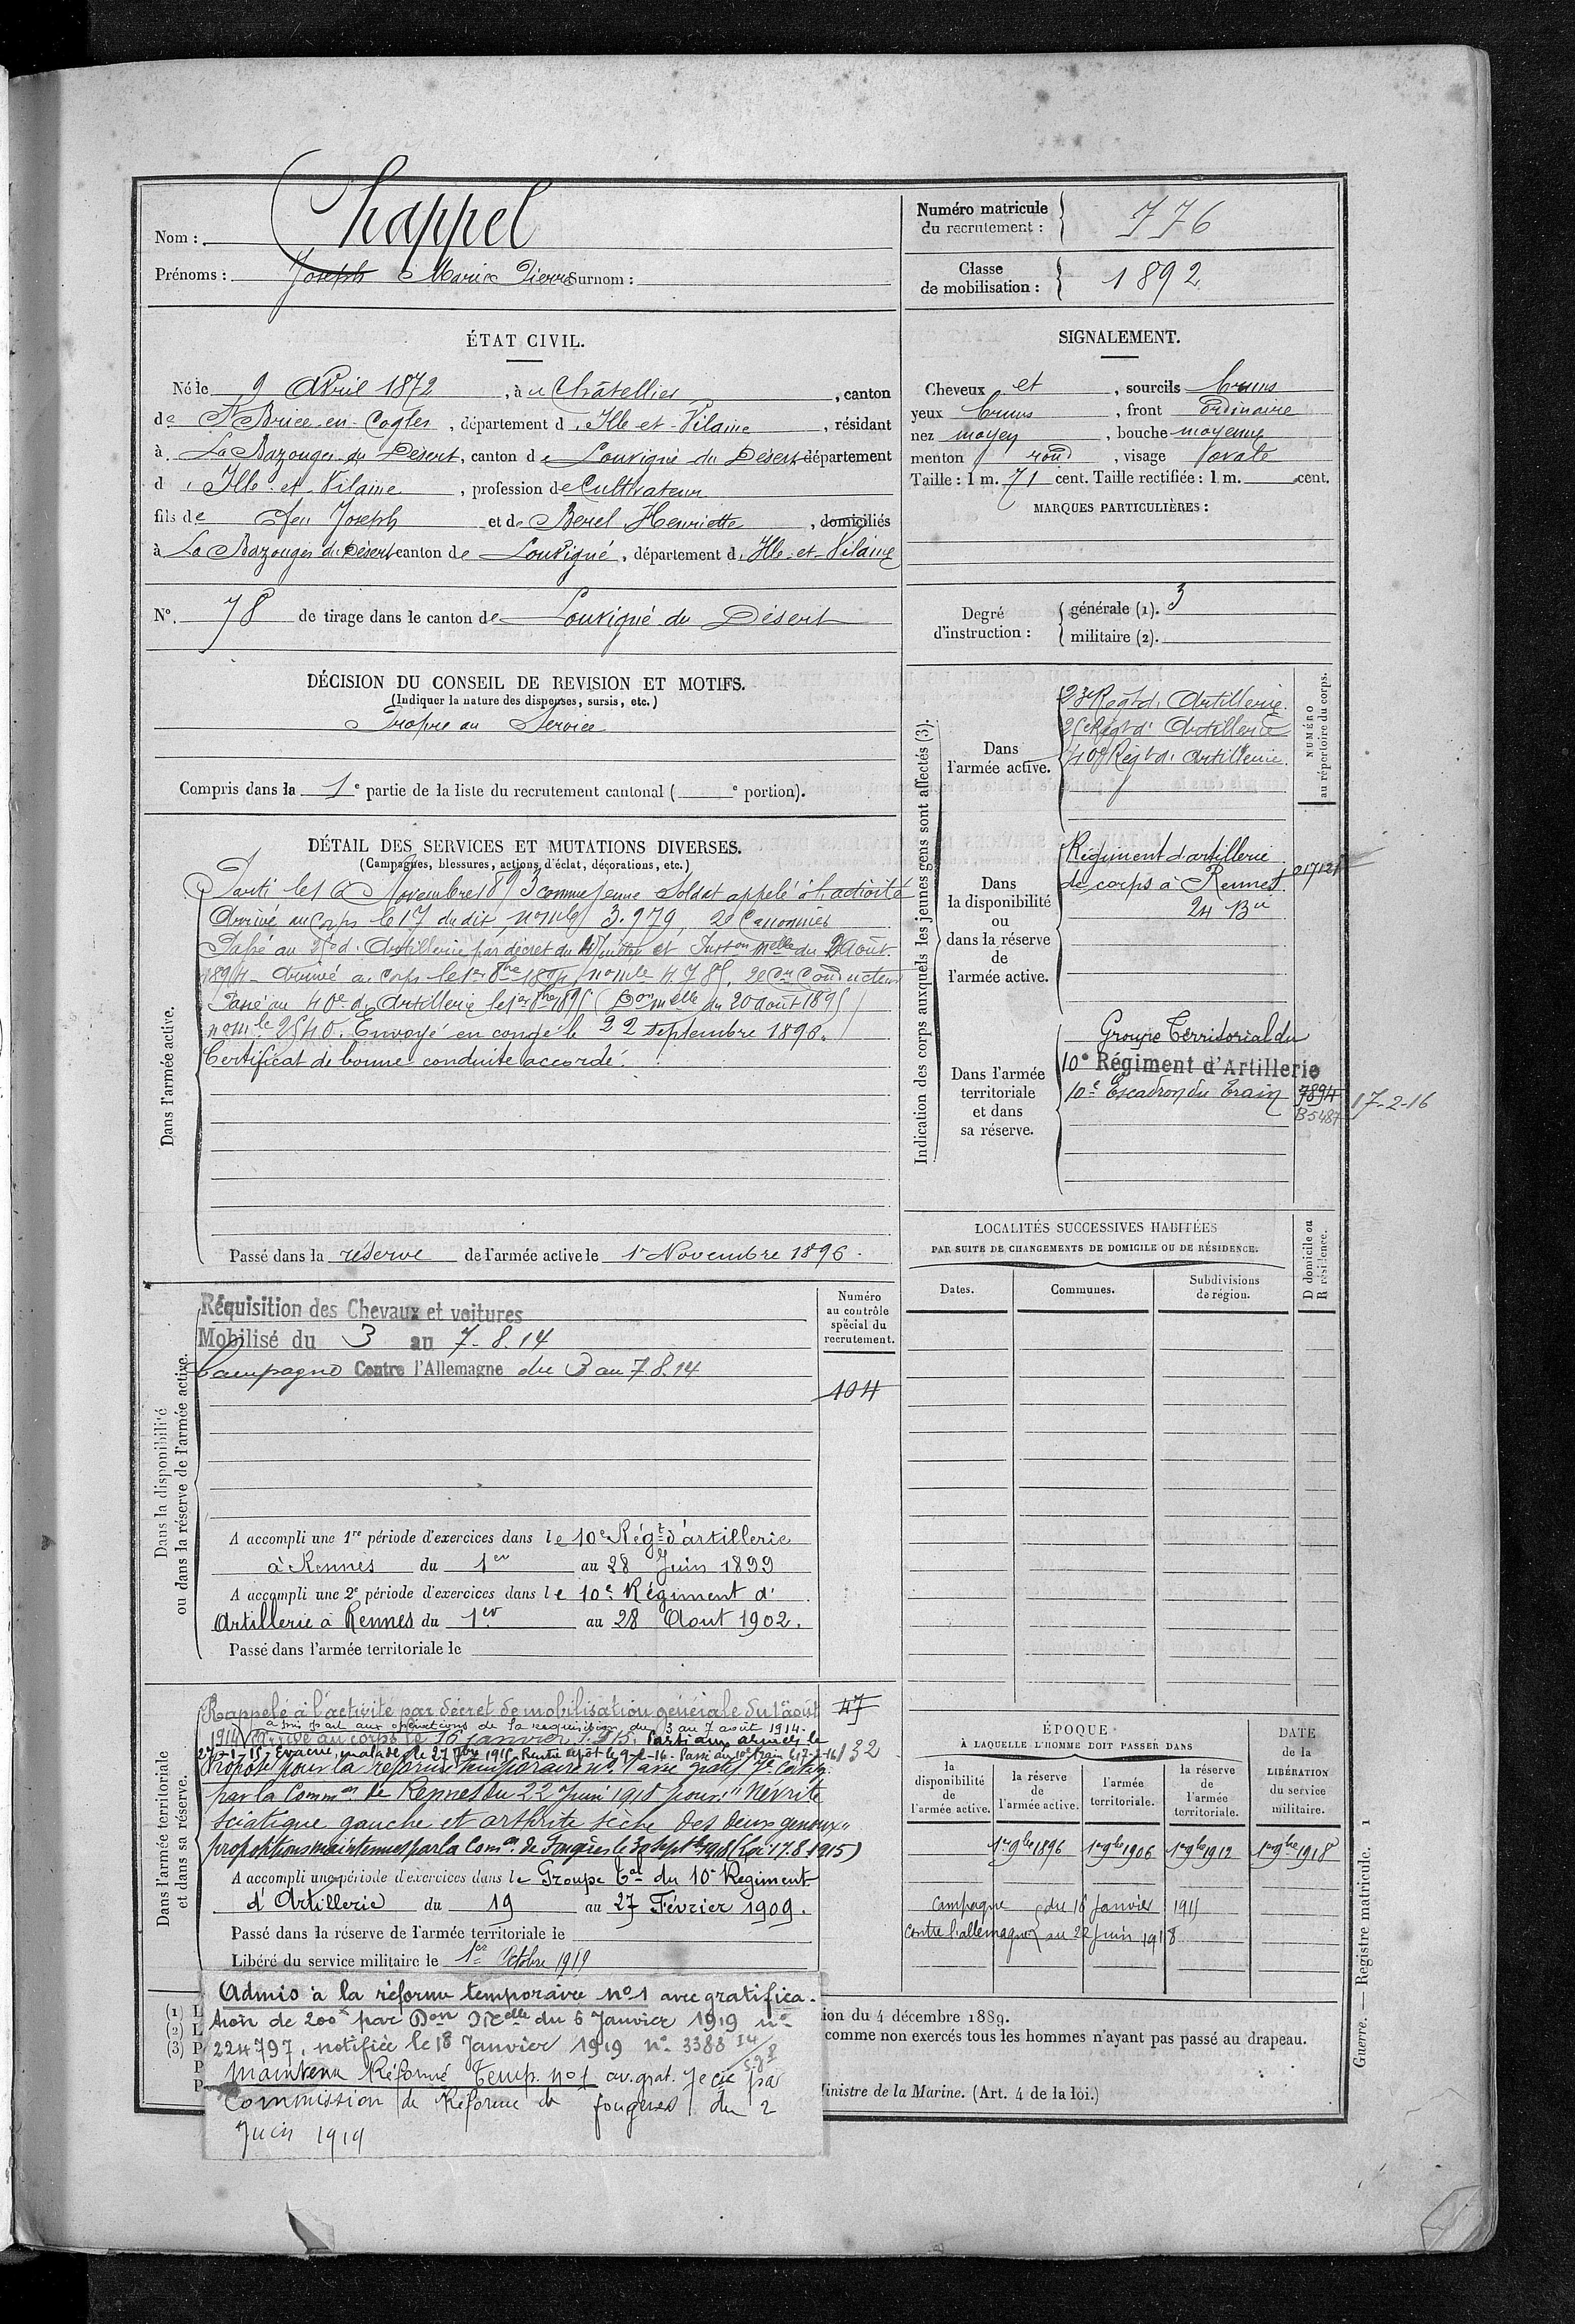 Nom : Chappel
Prénoms : Joseph Marie Pierre Surnom :
Numéro matricule du recrutement : 776
Classe de mobilisation : 1892
ÉTAT CIVIL.
Né le 9 Avril 1872, à u Châtellier, canton
de St Brice-en-Cogles, département d'Ille-et-Vilaine, résidant
à La Bazouges du Désert, canton de Louvigné du Désert département
d'Ille-et-Vilaine, profession de Cultivateur
fils de feu Joseph et de Berel Henriette, domiciliés
à La Bazouges du Désert canton de Louvigné, département d'Ille-et-Vilaine
N°. 78 de tirage dans le canton de Louvigné du Désert
DÉCISION DU CONSEIL DE REVISION ET MOTIFS.
(Indiquer la nature des dispenses, sursis, etc.)
Propre au Service
Compris dans la 1e partie de la liste du recrutement cantonal ( e portion).
SIGNALEMENT.
Cheveux et, sourcils bruns
yeux bruns, front ordinaire
nez moyen, bouche moyenne
menton rond, visage ovale
Taille : 1 m. 71 cent. Taille rectifiée : 1 m. cent.
MARQUES PARTICULIÈRES :
Degré d'instruction :
générale (1). 3
militaire (2).
DÉTAIL DES SERVICES ET MUTATIONS DIVERSES.
(Campagnes, blessures, actions d'éclat, décorations, etc.)
Dans l'armée active.
Parti le 16 Novembre 1893 comme jeune Soldat appelé à l'activité
Arrivé au Corps le 17 dudit, no mle 3.979, 2e Canonnier
Passé au 25e d'Artillerie par décret du Juillet et Inston Melle du 2 Août
1894 - Arrivé au Corps le 1er 8bre 1894, no mle 4785, 2e Cr Conducteur
Passé au 40e d'Artillerie le 1er 8bre 1895 (Don Melle du 20 août 1895)
no mle 2540. Envoyé en congé le 22 septembre 1896.
Certificat de bonne conduite accordé.
Passé dans la réserve de l'armée active le 1r Novembre 1896.
Indication des corps auxquels les jeunes gens sont affectés (3).
NUMÉRO au répertoire du corps.
Dans l'armée active.
23e Regt d'Artillerie
25e Régt d'Artillerie
40e Régt d'Artillerie
Dans la disponibilité ou dans la réserve de l'armée active.
Régiment d'artillerie
de corps à Rennes
24 Bie
Dans l'armée territoriale et dans sa réserve.
Groupe Territorial du
10e Régiment d'Artillerie
10e Escadron du Train 7894 17-2-16
B5487
LOCALITÉS SUCCESSIVES HABITÉES
PAR SUITE DE CHANGEMENTS DE DOMICILE OU DE RÉSIDENCE.
D domicile ou R résidence.
Dates. Communes. Subdivisions de région.
Dans la disponibilité ou dans la réserve de l'armée active.
Numéro au contrôle spécial du recrutement.
104
Réquisition des Chevaux et voitures
Mobilisé du 3 au 7-8.14
Campagne Contre l'Allemagne du 3 au 7.8.14
A accompli une 1re période d'exercices dans le 10e Régt d'artillerie
à Rennes du 1er au 28 Juin 1899
A accompli une 2e période d'exercices dans le 10e Régiment d'
Artillerie à Rennes du 1er au 28 Aout 1902.
Passé dans l'armée territoriale le
Dans l'armée territoriale et dans sa réserve.
Rappelé à l'activité par décret de mobilisation générale du 1er août 47
a pris part aux opérations de la réquisition du 3 au 7 août 1914.
1914 Arrivé au corps le 16 janvier 1915. Parti aux armées le
27-1-15. Evacué, malade, le 27 1915. Rentré dépôt le 9-2-16. Passé au 10e Train le 17-2-16 132
Proposé pour la réforme temporaire n° 1 avec gratif 7e catég.
par la Common de Rennes du 22 Juin 1918 pour: "Névrite
sciatique gauche et arthrite sèche des deux genoux"
propositions maintenues par la Comon de Fougères le 30 Septbre 1918 (Loi 17.8.1915)
A accompli une période d'exercices dans le Groupe Tal du 10e Regiment
d'Artillerie du 19 au 27 Février 1909.
Passé dans la réserve de l'armée territoriale le
Libéré du service militaire le 1er Octobre 1919
ÉPOQUE
À LAQUELLE L'HOMME DOIT PASSER DANS
la disponibilité de l'armée active.
la réserve de l'armée active.
l'armée territoriale.
la réserve de l'armée territoriale.
DATE de la LIBÉRATION du service militaire.
1er 9bre 1896 1er 9bre 1906 1er 9bre 1912 1er 9bre 1918
Campagne du 16 Janvier 1915
Contre l'allemagne au 22 Juin 1918
Admis à la réforme temporaire n° 1 avec gratifica-
tion de 200f par Don Mielle du 6 Janvier 1919 n°
224797, notifiée le 18 Janvier 1919 n° 3388
Maintenu Réformé Temp. n° 1 av. grat. 7e cie par
Commission de Réforme de fougères du 2
Juin 1919
(1) L
(2) L
(3) P
P
P
ion du 4 décembre 1889.
comme non exercés tous les hommes n'ayant pas passé au drapeau.
Ministre de la Marine. (Art. 4 de la loi.)
Guerre. — Registre matricule. 1